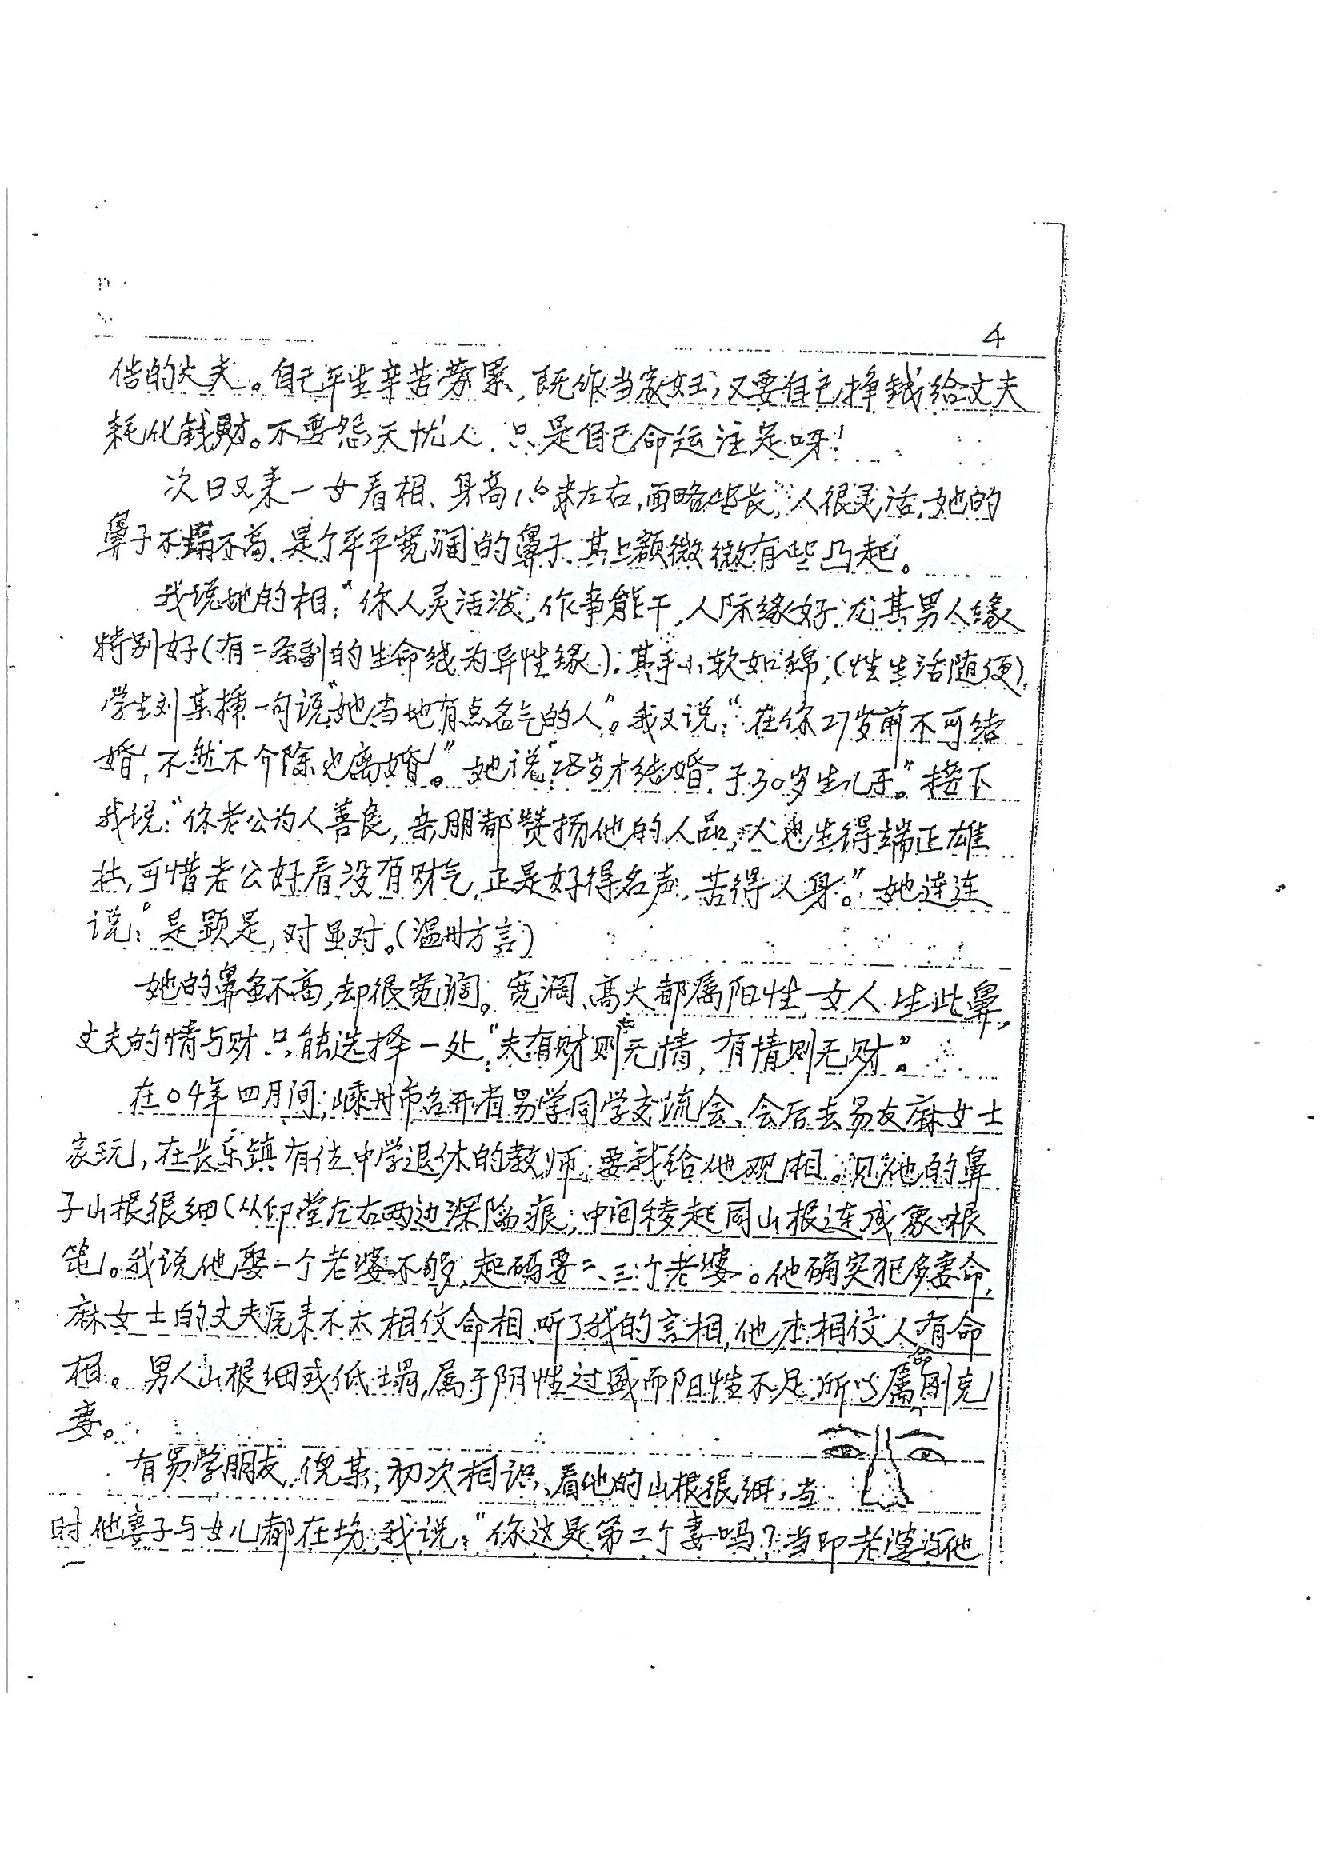 4
偕的丈夫。自己平生辛苦劳累，既作当家女王，又要自己挣钱给丈夫
耗化钱财。不要怨天忧人，只是自己命运注定呀！
次日又来一女看相、身高1.6米左右，面略些长，人很灵活，她的
鼻子不塌不高，是个平平宽阔的鼻子，其上额微微有些凸起。
我说她的相：“你人灵活泼，作事能干，人际缘好，尤其男人缘
特别好（有二条副的生命线为异性缘）。其手小软如绵，（性生活随便），
学生刘某插一句说“她当地有点名气的人”。我又说：“在你27岁前不可结
婚，不然不介除也离婚！”她说“28岁才结婚，于30岁生儿子。”接下
我说：“你老公为人善良，亲朋都赞扬他的人品，人也生得端正雄
壮，可惜老公好看没有财气，正是好得名声，苦得人身。”她连连
说：“是显是，对显对。（温州方言）
她的鼻虽不高，却很宽阔。宽阔、高大都属阳性，女人生此鼻，
丈夫的情与财只能选择一处，“夫有财则无情，有情则无财”。
在04年四月间，嵊州市召开有易学同学交流会、会后去易友麻女士
家玩，在长乐镇有位中学退休的教师，要我给他观相。见他的鼻
子山根很细（从印堂左右两边深陷痕，中间棱起同山根连成象一根
笔）。我说他娶一个老婆不够，起码要二、三个老婆。他确实犯多妻命，
麻女士的丈夫原来不太相信命相，听了我的言相，他才相信人有命
相。男人山根细或低塌，属于阴性过盛而阳性不足，所以属命刚克
妻。
有易学朋友，倪某，初次相识，看他的山根很细，当
时他妻子与女儿都在场，我说：“你这是第二个妻吗？当即老婆诉他